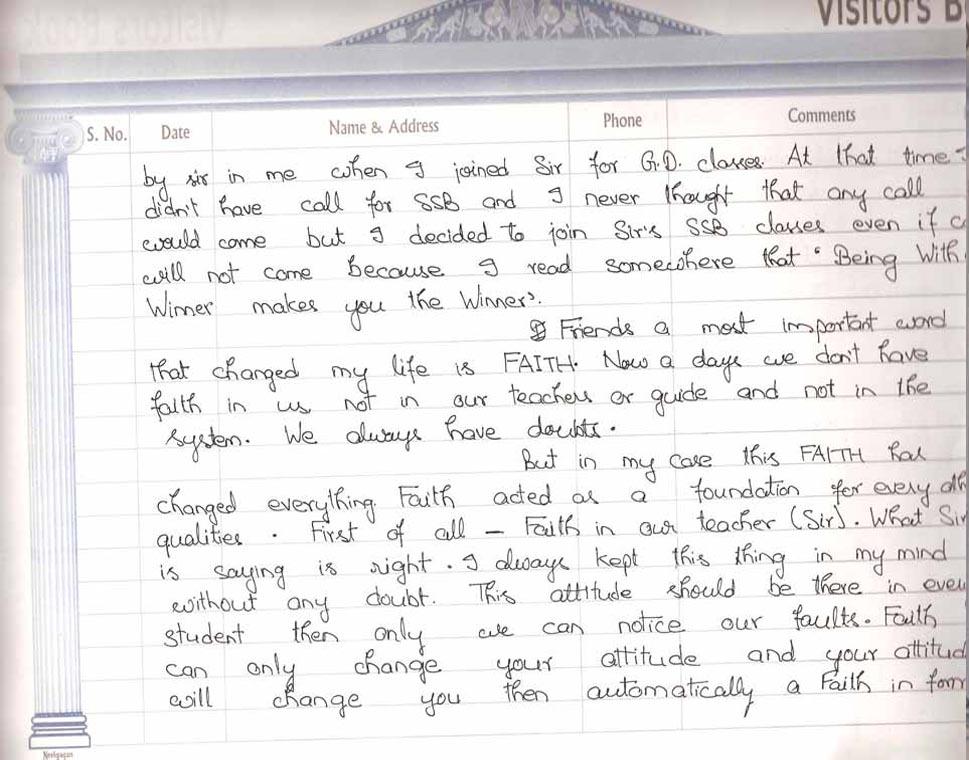 VISITORS B
S. No. Date Name & Address Phone Comments
by sir in me when I joined Sir for G.D. classes. At that time I
didn't have call for SSB and I never thought that any call
would come but I decided to join Sir's SSB classes even if c
will not come because I read somewhere that "Being With
Winner makes you the Winner".
Friends a most important word
that changed my life is FAITH. Now a days we don't have
faith in us, not in our teachers or guide and not in the
system. We always have doubts.
But in my case this FAITH has
changed everything. Faith acted as a foundation for every oth
qualities. First of all – Faith in our teacher (Sir). What Sir
is saying is right. I always kept this thing in my mind
without any doubt. This attitude should be there in ever
student then only we can notice our faults. Faith
can only change your attitude and your attitud
will change you then automatically a Faith in form
Neelgagan